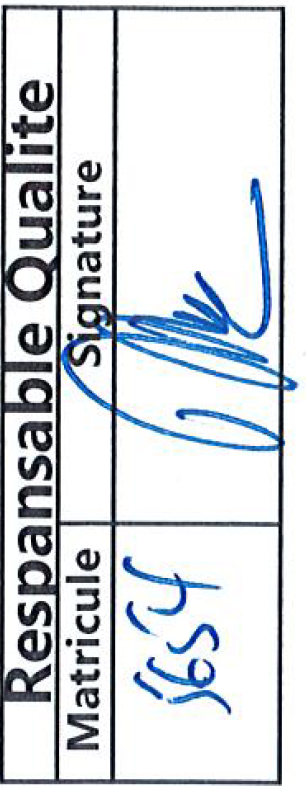 Respansable Qualite
Matricule Signature
5654